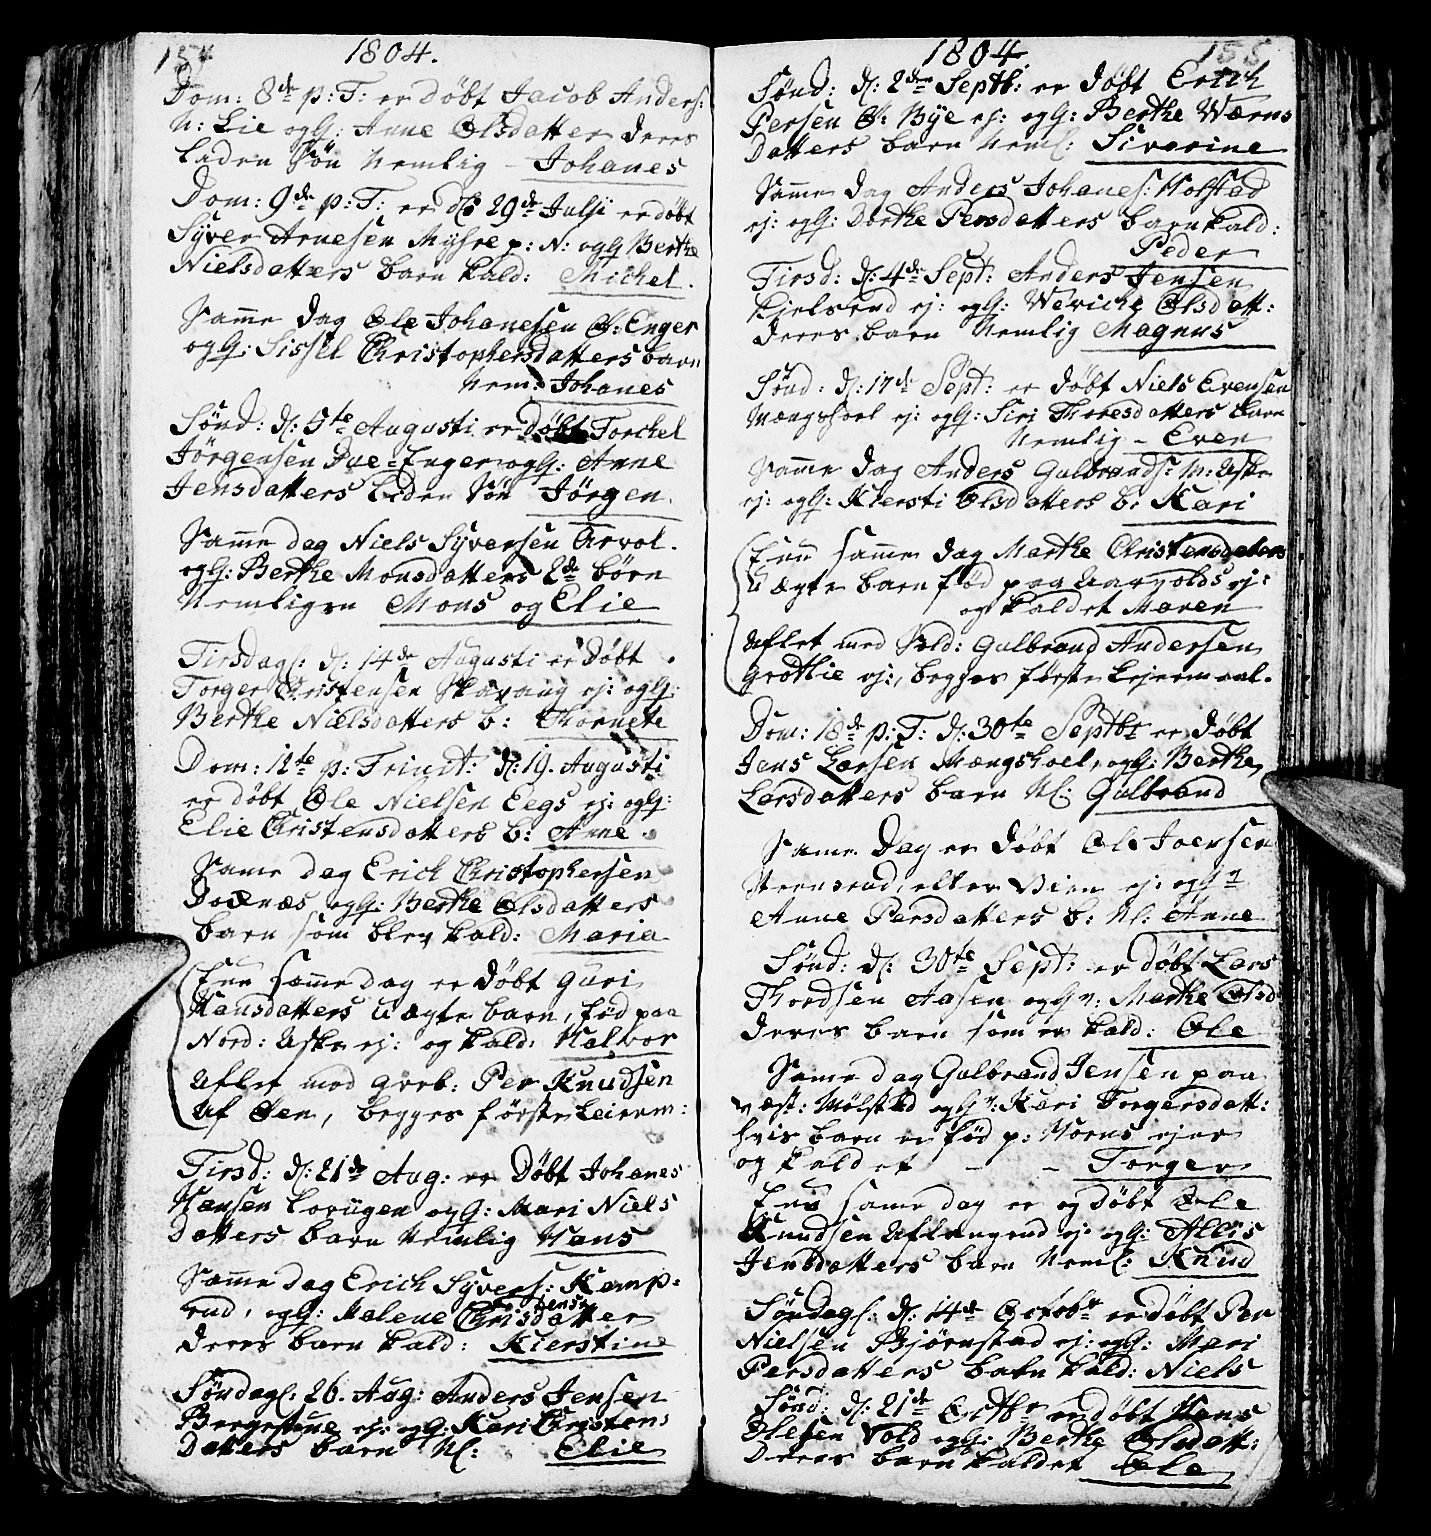 154
1804.
Dom: 8de p: T: er døbt Jacob Anders:
N: Lie ogH: Anne Olsdatter deres
Liden Søn Nemlig - Johanes
Dom: 9de p: T: er d: 29de Julji er døbt
Syver Arnesen Mysre p: N: ogH Berthe
Nielsdatters barn kald: Michel.
Samme dag Ole Johanesen Ø: Enger
ogH: Sissel Christophersdatters barn
Nem: Johanes
Sønd: d: 5te Augusti er Døbt Torchel
Jörgensen Due-Enger ogH: Anne
Jensdatters Liden Søn Jörgen
Samme dag Niels Syversen Arvol.
ogH: Berthe Monsdatters 2de börn
Nemligen Mons og Elie
Tirsdags: d: 14de Augusti er døbt
Torger Christensen Skavang ej: ogH:
Berthe Nielsdatters b: Thornete
Dom: 12te p: Trinit: d: 19. Augusti
er døbt Ole Nielsen Eegs ej: ogH:
Elie Christensdatters b: Anne
Same dag Erich Christophersen
ogH: Berthe Olsdatters
barn som blev kald: Maria
End samme dag er døbt Guri
Hansdatters Uægte barn, fød paa
Nord: Aske ej: og kald: Halvor
Aflet med Greb: Per Knudsen
af Øen, begges første Leierm:
Tirsd: d: 21de Aug: er Døbt Johanes
Hansen Lovügen ogH: Mari Niels
Datters barn Nemlig Hans
Samme dag Erich Syvers: Kamp-
rud, ogH: Malene Christensdatter
deres barn kald: Kierstine
Søndags: 26. Aug: Anders Jensen
ej: ogH: Kari Christens
Datters barn Nl: Elie
1804.
155
Sønd: d: 2den Septb: er døbt Erich
Persen Ø: Bye ej: ogH: Berthe Wærns
Datters barn Neml: Siverine
Samme dag Anders Johanes: Holstad
ej: ogH: Dorthe Persdatters barn kald:
Peder
Tirsd: d: 4de Sept: Anders Jensen
Kjelsrud ej: ogH: Weriche Olsdatt:
deres barn Nemlig Magnus
Sønd: d: 17de Sept: er døbt Niels Evensen
Mængshoel ej: ogH: Siri Thoresdatters barn
Nemlig - Even
Samme dag Anders Gulbrands: N: Aske
ej: ogH: Kiersti Olsdatters b: Kari
End samme dag Marthe Christensdatters
Uægte barn fød paa Aarvolds ej:
og kaldet Maren
Aflet med Sold: Gulbrand Andersen
Grøtlie ej:, begges første Lejermaal.
Dom: 18de p: T: d: 30te Septbr er døbt
Jens Larsen Mængshoel, ogH: Berthe
Larsdatters barn Nl: Gulbrand
Same Dag er døbt Ole Joersen
Steensrud, eller Vien ej: ogHr
Anne Persdatters b: Nl: Anne
Sønd: d: 30te Sept: er døbt Lars
Thordsen Aasen ogHr: Marthe Olsd
deres barn som er kald: Ole
Same dag Gulbrand Jensen paa
væst: Mølstad ogHr: Kari Torgersdatt:
hvis barn er fød p: Horns ejer
og kaldet - - Torger
End same dag er og døbt Ole
Knudsen Aflangrud ej: ogH: Allis
Jensdatters barn Neml: Knud
Søndags: d: 14de Octobr er døbt Per
Nielsen Bjørnstad ej: ogH: Mari
Persdatters barn kald: Niels
Sønd: d: 21de Octbr er døbt Hans
Olesen Vold ogH: Berthe Olsdatt:
deres barn kaldet Ole